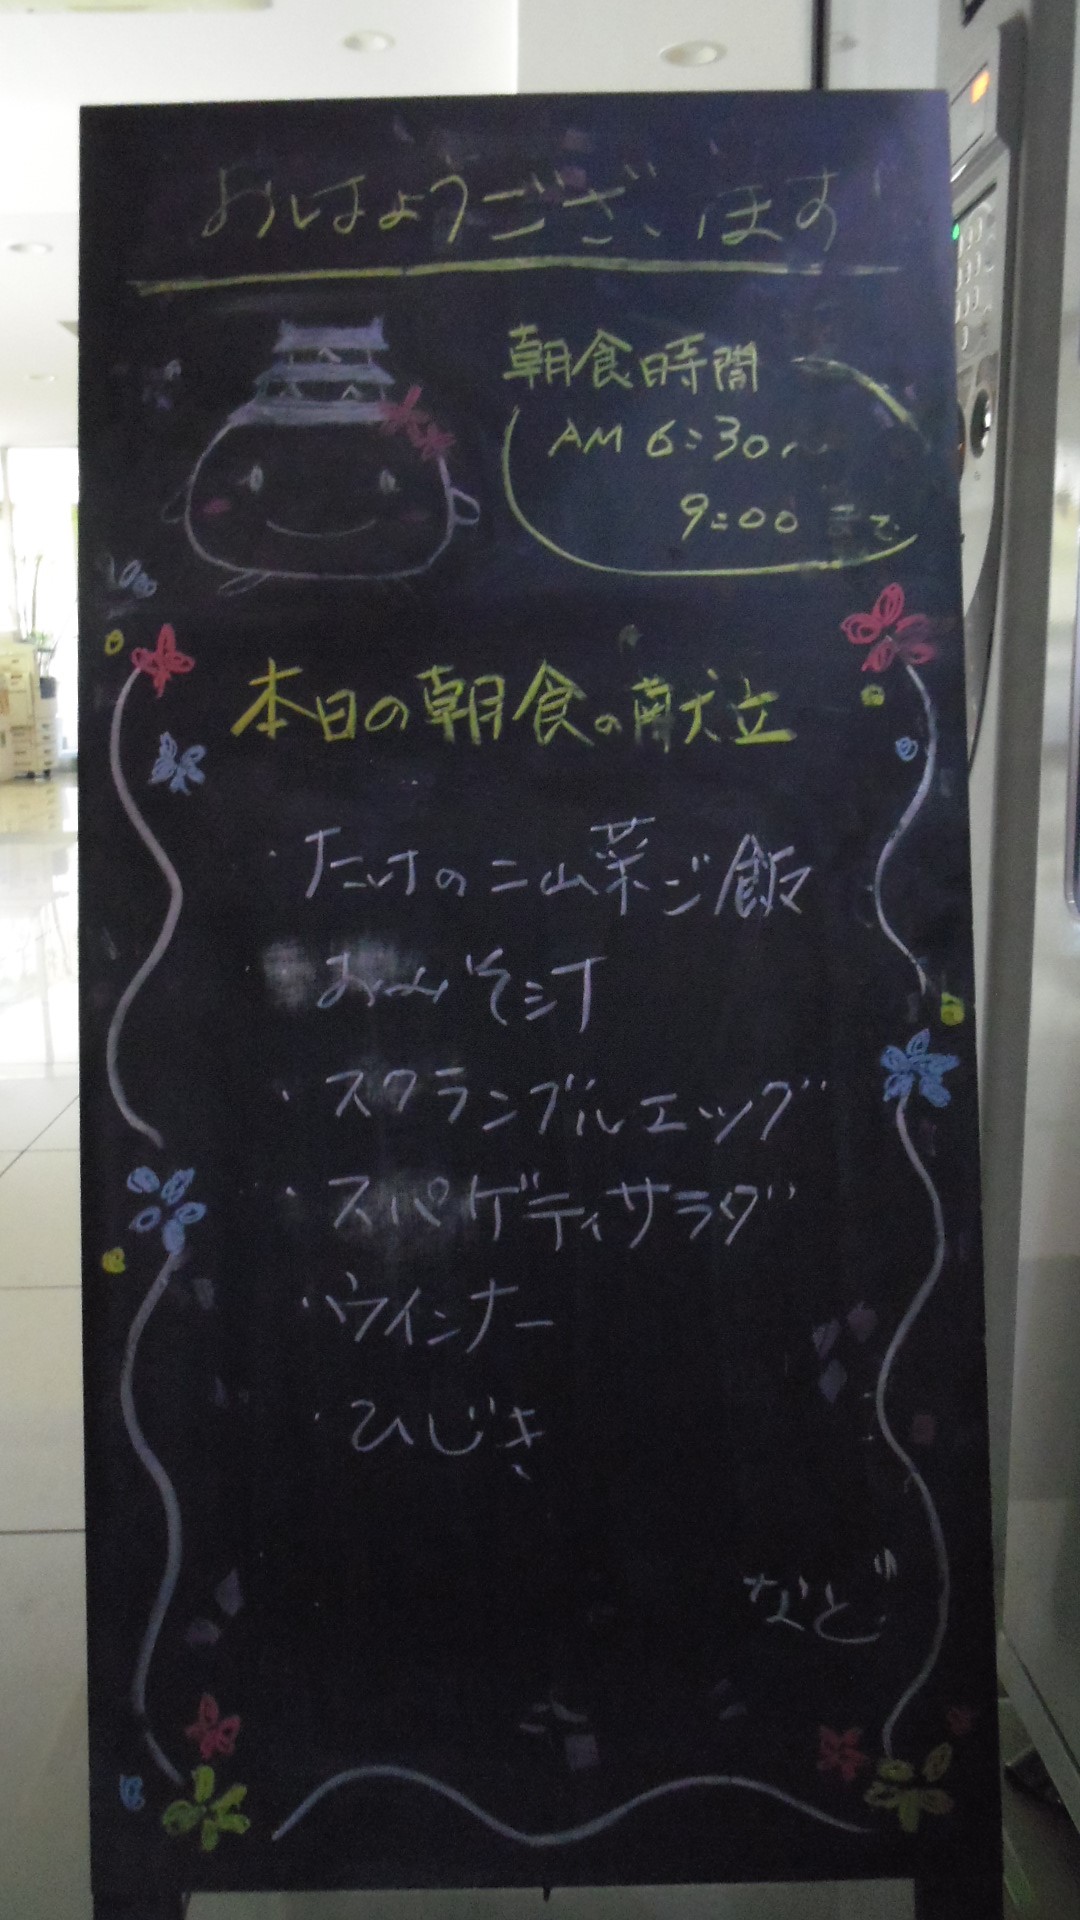 おはようございます
朝食時間
AM 6:30~
9:00 まで
本日の朝食の献立
・たけのこ山菜ご飯
・おみそ汁
・スクランブルエッグ
・スパゲティサラダ
・ウインナー
・ひじき
など